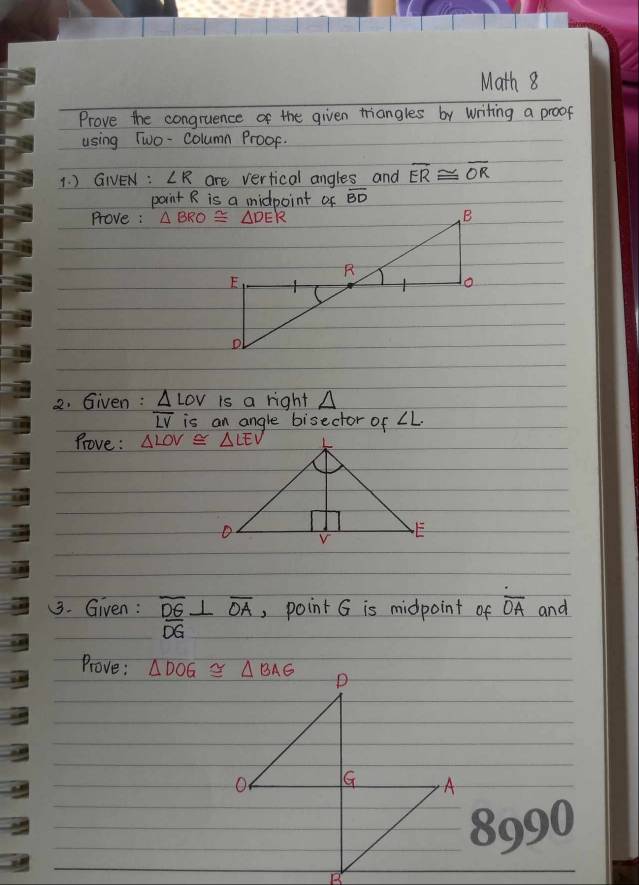 Math 8
Prove the congruence of the given triangles by writing a proof
using Two-Column Proof.
1.) GIVEN : ∠R are vertical angles and ER ≅ OR
point R is a midpoint of BD
Prove : △BRO ≅ △DER
B
R
E
O
D
2. Given : △LOV is a right △
LV is an angle bisector of ∠L.
Prove : △LOV ≅ △LEV
L
O
V
E
3. Given : DG ⊥ OA, point G is midpoint of OA and
DG
Prove : △DOG ≅ △BAG
D
O
G
A
8990
B